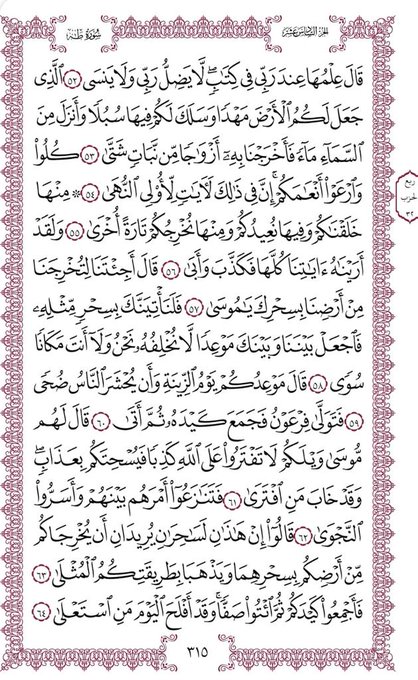 الجُزْءُ السَّادِسَ عَشَرَ
سُورَةُ طٰهٰ
قَالَ عِلْمُهَا عِندَ رَبِّى فِى كِتَٰبٍۖ لَّا يَضِلُّ رَبِّى وَلَا يَنسَى ٥٢ ٱلَّذِى
جَعَلَ لَكُمُ ٱلْأَرْضَ مَهْدًا وَسَلَكَ لَكُمْ فِيهَا سُبُلًا وَأَنزَلَ مِنَ
ٱلسَّمَآءِ مَآءً فَأَخْرَجْنَا بِهِۦٓ أَزْوَٰجًا مِّن نَّبَاتٍ شَتَّىٰ ٥٣ كُلُوا۟
وَٱرْعَوْا۟ أَنْعَٰمَكُمْۗ إِنَّ فِى ذَٰلِكَ لَءَايَٰتٍ لِّأُو۟لِى ٱلنُّهَىٰ ٥٤ ۞ مِنْهَا
خَلَقْنَٰكُمْ وَفِيهَا نُعِيدُكُمْ وَمِنْهَا نُخْرِجُكُمْ تَارَةً أُخْرَىٰ ٥٥ وَلَقَدْ
أَرَيْنَٰهُ ءَايَٰتِنَا كُلَّهَا فَكَذَّبَ وَأَبَىٰ ٥٦ قَالَ أَجِئْتَنَا لِتُخْرِجَنَا
مِنْ أَرْضِنَا بِسِحْرِكَ يَٰمُوسَىٰ ٥٧ فَلَنَأْتِيَنَّكَ بِسِحْرٍ مِّثْلِهِۦ
فَٱجْعَلْ بَيْنَنَا وَبَيْنَكَ مَوْعِدًا لَّا نُخْلِفُهُۥ نَحْنُ وَلَآ أَنتَ مَكَانًا
سُوًى ٥٨ قَالَ مَوْعِدُكُمْ يَوْمُ ٱلزِّينَةِ وَأَن يُحْشَرَ ٱلنَّاسُ ضُحًى
٥٩ فَتَوَلَّىٰ فِرْعَوْنُ فَجَمَعَ كَيْدَهُۥ ثُمَّ أَتَىٰ ٦٠ قَالَ لَهُم
مُّوسَىٰ وَيْلَكُمْ لَا تَفْتَرُوا۟ عَلَى ٱللَّهِ كَذِبًا فَيُسْحِتَكُم بِعَذَابٍۖ
وَقَدْ خَابَ مَنِ ٱفْتَرَىٰ ٦١ فَتَنَٰزَعُوٓا۟ أَمْرَهُم بَيْنَهُمْ وَأَسَرُّوا۟
ٱلنَّجْوَىٰ ٦٢ قَالُوٓا۟ إِنْ هَٰذَٰنِ لَسَٰحِرَٰنِ يُرِيدَانِ أَن يُخْرِجَاكُم
مِّنْ أَرْضِكُم بِسِحْرِهِمَا وَيَذْهَبَا بِطَرِيقَتِكُمُ ٱلْمُثْلَىٰ ٦٣
فَأَجْمِعُوا۟ كَيْدَكُمْ ثُمَّ ٱئْتُوا۟ صَفًّاۚ وَقَدْ أَفْلَحَ ٱلْيَوْمَ مَنِ ٱسْتَعْلَىٰ ٦٤
رُبْع
الحِزْب
٣١٥